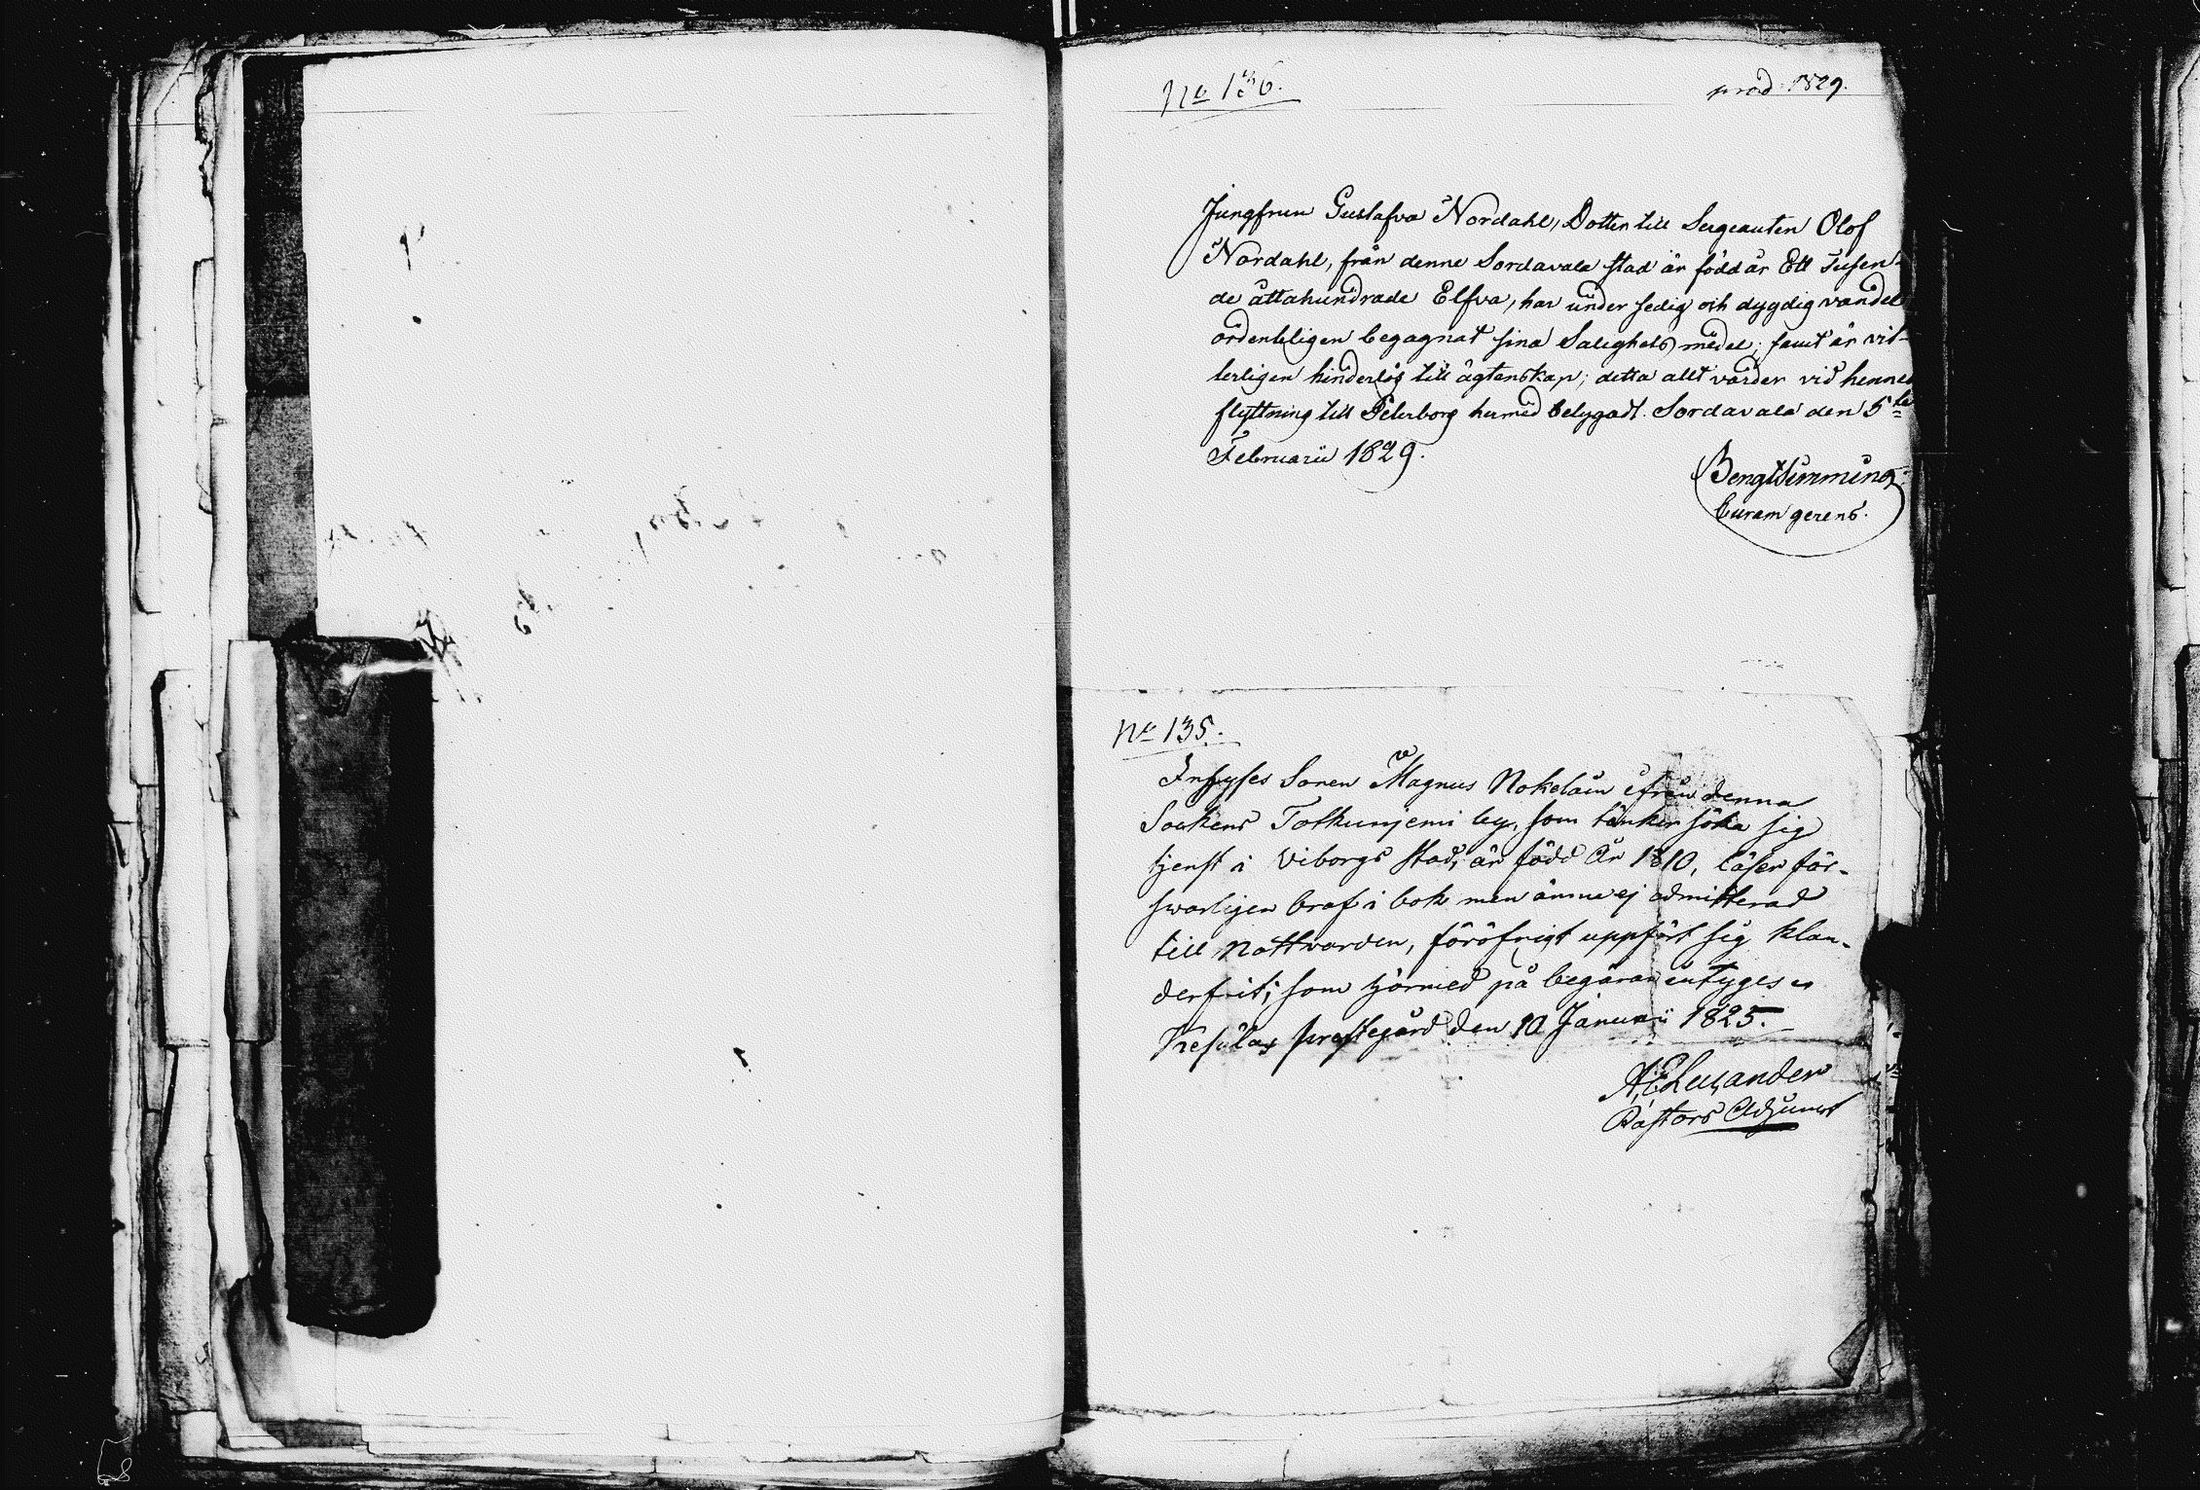 No 136.
prod. 1829.
Jungfrun Gustafva Nordahl, Dotter till Sergeanten Olof
Nordahl, från denne Sordavala stad är född år Ett Tusen-
de åttahundrade Elfva, har under sedig och dygdig vandel
ordenteligen begagnat sina Salighets medel; samt är vit-
terligen hinderlös till ägtenskap; detta allt varder vid hennes
flyttning till Peterborg hermed betygadt. Sordavala den 5te
Februarii 1829.
Bengt
Curam gerens.
No 135.
Inhyses Sonen Magnus Nokelain ifrån denna
Sockens Tolkunjemi by, som tänker söka sig
tjenst i Viborgs stad, är född år 1810, läser för-
svarligen braf i bok men ännu ej admitterad
till nattvarden, föröfrigt uppfört sig klan-
derfrit; som härmed på begäran intygas
prestegård den 10 Januarii 1825.
Pastors Adjunct